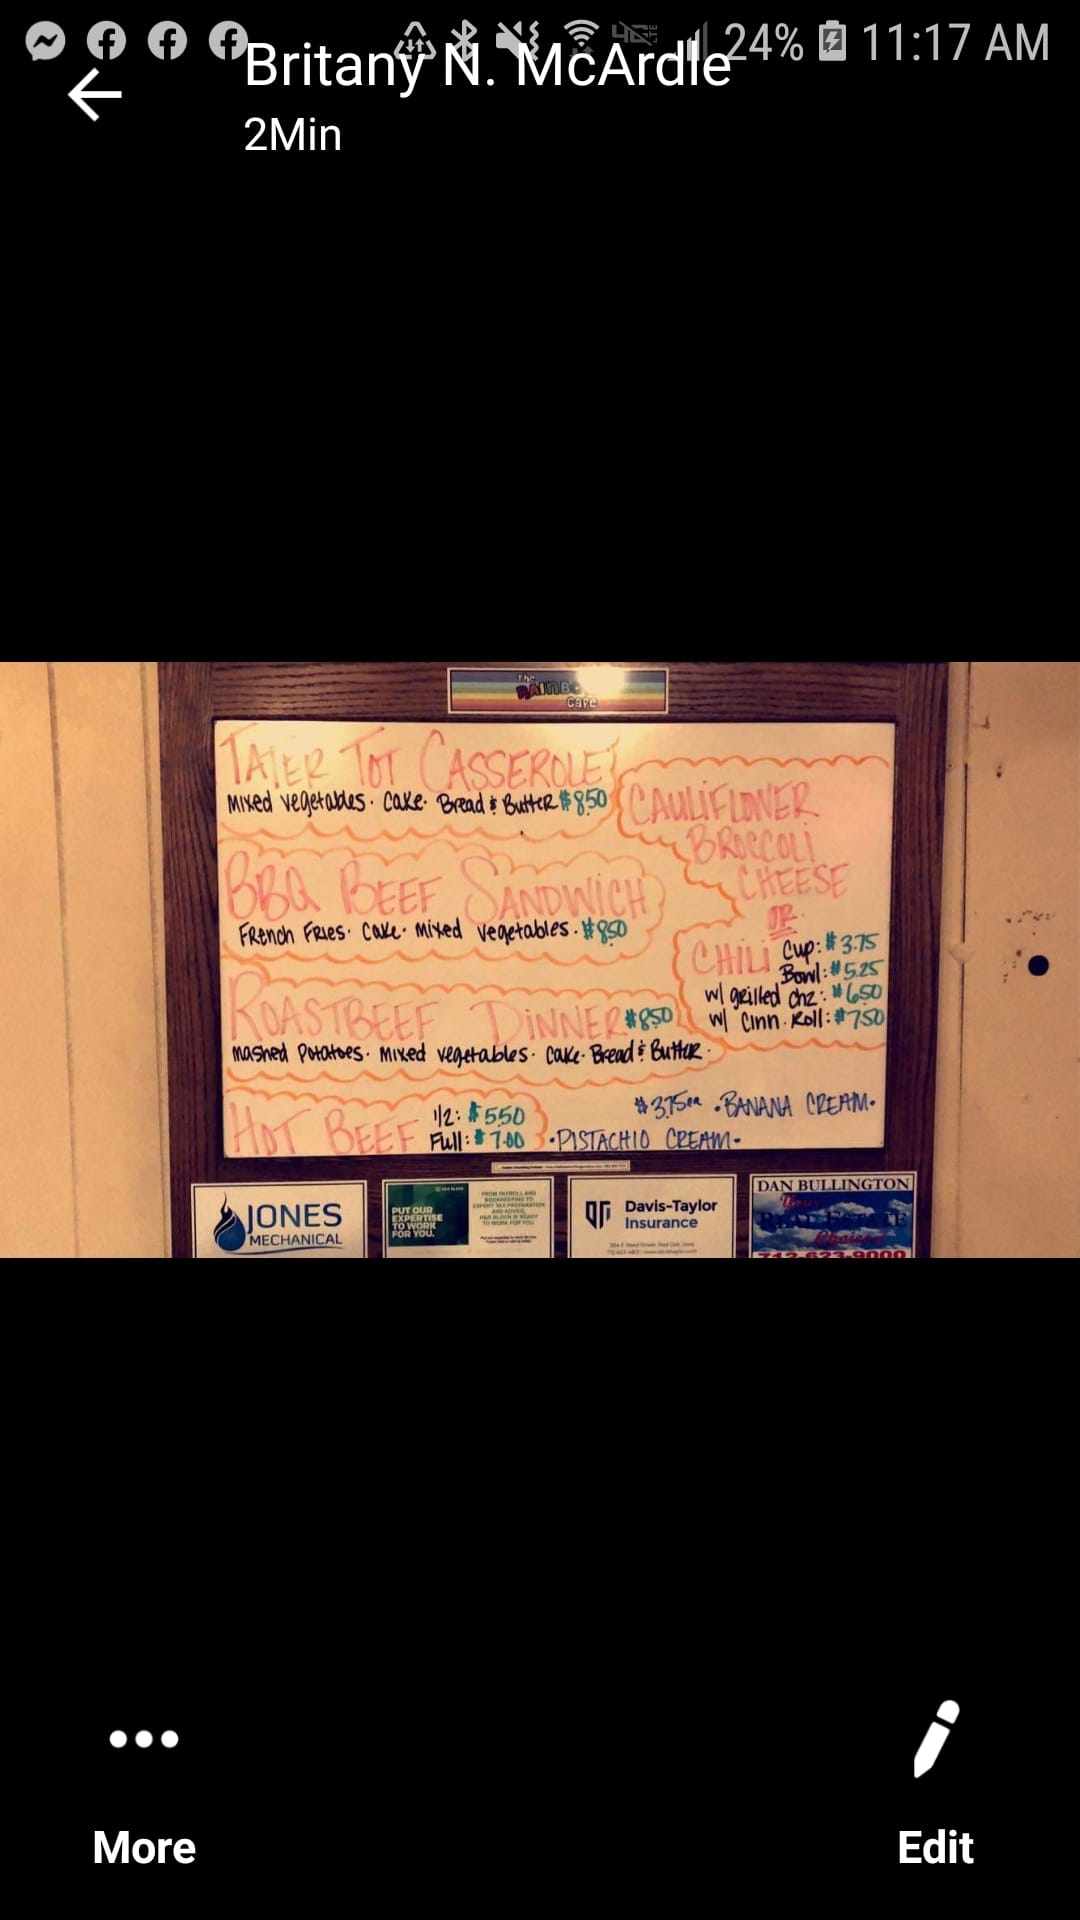 24% 11:17 AM
Britany N. McArdle
2Min
The
RAINBO
Cafe
TATER TOT CASSEROLE
Mixed Vegetables · Cake · Bread & Butter $8.50
CAULIFLOWER
BROCCOLI
CHEESE
OR
BBQ BEEF SANDWICH
French Fries · Cake · Mixed Vegetables · $8.50
CHILI Cup: $3.75
Bowl: $5.25
w/ grilled chz: $6.50
w/ Cinn. Roll: $7.50
ROASTBEEF DINNER $8.50
Mashed Potatoes · Mixed Vegetables · Cake · Bread & Butter ·
HOT BEEF 1/2: $5.50
Full: $7.00
$3.75ea · BANANA CREAM ·
· PISTACHIO CREAM ·
JONES
MECHANICAL
PUT OUR
EXPERTISE
TO WORK
FOR YOU.
FROM PAYROLL AND
BOOKKEEPING TO
EXPERT TAX PREPARATION
AND ADVICE,
H&R BLOCK IS READY
TO WORK FOR YOU.
Davis-Taylor
Insurance
DAN BULLINGTON
Your
REAL ESTATE
712-623-9000
More
Edit